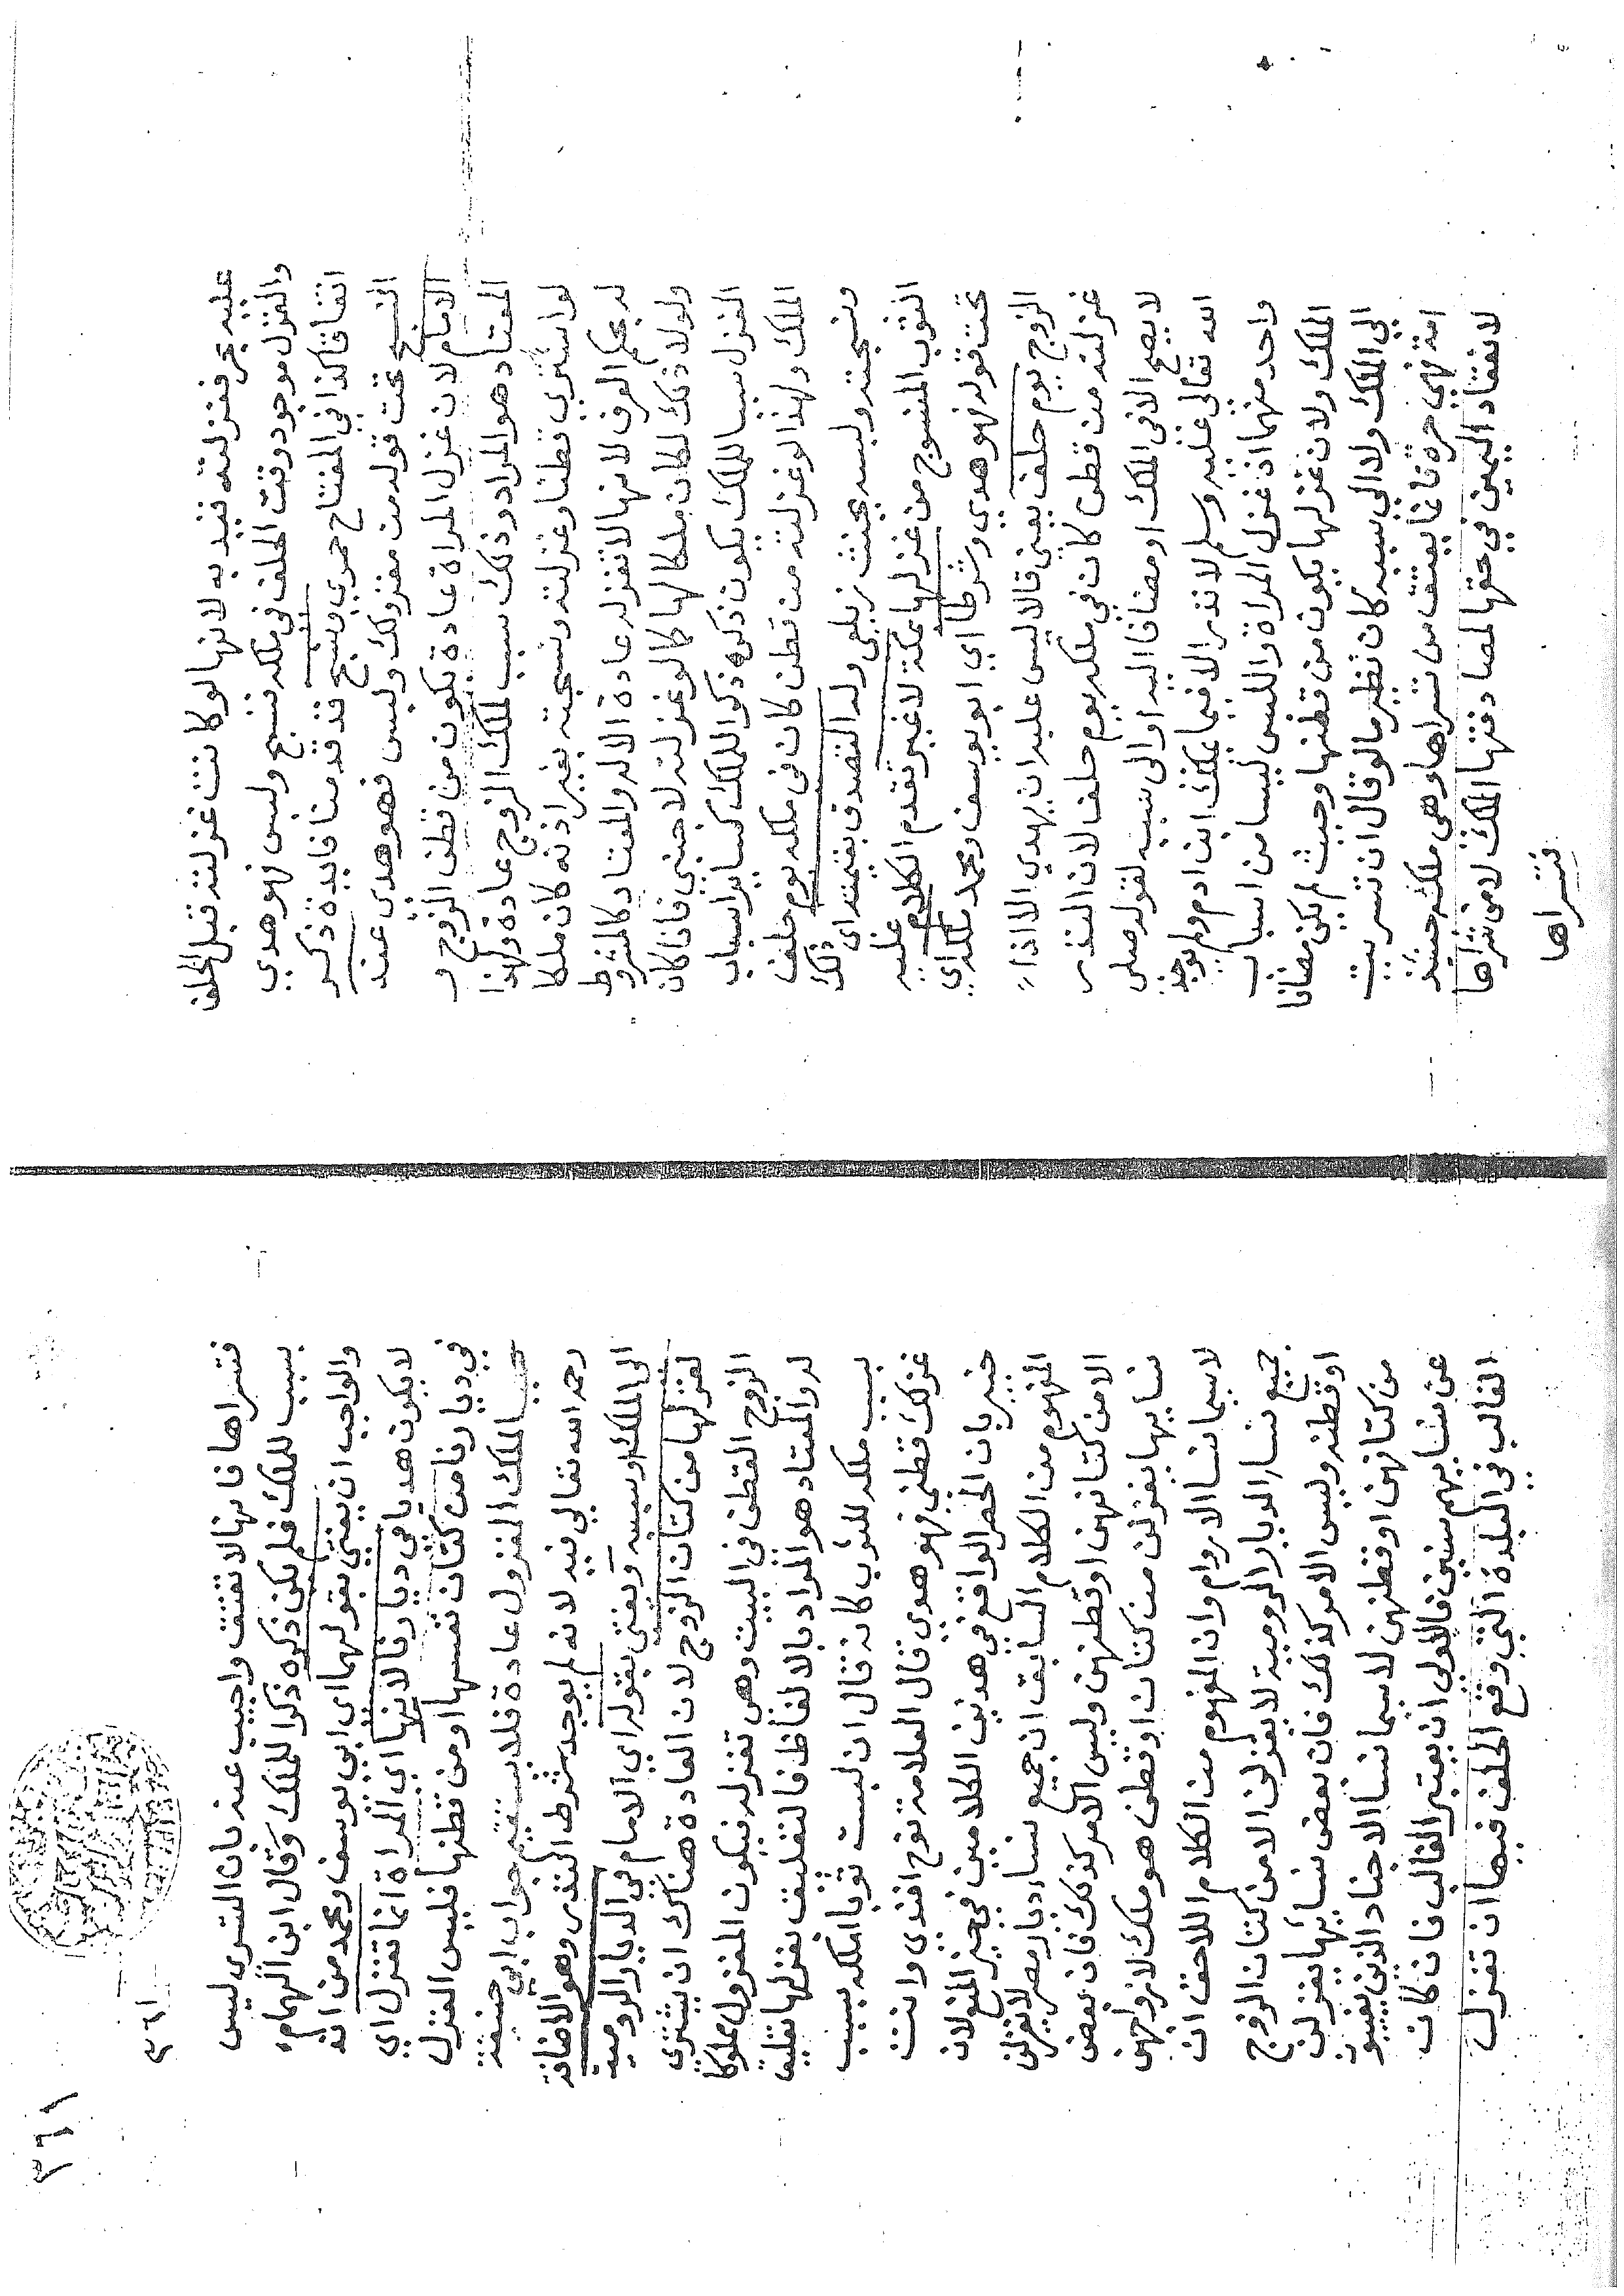 عليه بحر فغزلته قيد به لانها لو كانت غزلته قبل الحلف
والغزل موجود وقت الحلف في ملكه فنسج ولبس فهو هدي
اتفاقا كذا في المفتاح حموي ونسج قد قدمنا فايدة ذكر
النسج تحت قوله من مغزولك ولبس فهو هدى عند
الامام لان غزل المراة عادة يكون من قطن الزوج و
المعتاد هو المراد وذلك سبب لملك الزوج عادة ولهذا
لو اشتري قطنا وغزلته ونسجته بغير اذنه كان ملكا
له بحكم العرف لانها لا تغزله عادة الا له والمعتاد كالمشروط
ولولا ذلك لكان ملكا لها كما لو غزلته لاجنبي فاذا كان
الغزل سببا للملك يكون ذكره ذكرا للملك كسايراسباب
الملك ولهذا لو غزلته من قطن كان في ملكه يوم حلف
ونسجته ولبسه يحنث زيلعي وله التصدق بقيمته اى ذلك
الثوب المنسوج من غزلها بمكة لا غير وتقدم الكلام عليه
تحت قوله فهو هدي وشرطا اي ابو يوسف ومحمد ملكه اي
الزوج يوم حلف يعني قالا ليس عليه ان يهدي الا اذا
غزلته من قطن كان في ملكه يوم حلف لان النذر
لا يصح الا في الملك او مضافا اليه او الى سببه لقوله صلى
الله تعالى عليه وسلم لا نذر الا فيما يملك ابن ادم ولم يوجد
واحد منهما اذ غزل المراة واللبس ليسا من اسباب
الملك ولان غزلها يكون من قطنها وحيث لم يكن مضافا
الى الملك ولا الى سببه كان نظير ما لو قال ان تسريت
امة فهي حرة فانما يعتق من تسراها وهي ملكه حينئذ
لانعقاد اليمين في حقها لمصادفتها الملك لا من شراها
فتسراها
٣٦١
٣٦١
فتسراها فانها لا تعتق واجيب عنه بان التسرى ليس
بسبب للملك فلم يكن ذكره ذكرا للملك وقال ابن الهمام
والواجب ان يفتي بقولهما اى ابي يوسف ومحمد من انه
لا يكون هديا في ديارنا لانها اى المراة انما تغزل اي
في ديارنا من كتان نفسها او من قطنها فليس الغزل
سببا لملك المغزول عادة فلا يستقيم جواب ابي حنيفة
رحمه الله تعالي فيه لانه لم يوجد شرط النذر وهو الاضافة
الى الملك او سببه ويفتى بقوله اي الامام في الديار الرومية
لغزلها من كتان الزوج لان العادة هناك ان يشتري
الزوج القطن في البيت وهي تغزله فيكون المغزول مملوكا
له والمعتاد هو المراد بالالفاظ فالتعليق بغزلها تعليق
بسبب ملكه للثوب كانه قال ان لبست ثوبا املكه بسبب
غزلك قطني فهو هدي قال العلامة نوح افندي وانت
خبير بان الحصر الواقع في هذين الكلامين في حيز المنع لان
المفهوم من الكلام السابق ان جميع نساء ديار مصر لا يغزلن
الا من كتانهن او قطنهن وليس الامر كذلك فان بعض
نسايها يغزلن من كتان او قطن هو ملك لازواجهن
لاسيما نسا الاروام وان المفهوم من الكلام اللاحق ان
جميع نساء الديار الرومية لا يغزلن الا من كتان الزوج
او قطنه وليس الامر كذلك فان بعض نسائها يغزلن
من كتانهن او قطنهن لاسيما نسا الاجناد الذين يغيبون
عن نسايهم سنين فالاولى ان يعتبر الغالب فان كان
الغالب في البلدة التي وقع الحلف فيها ان تغزل